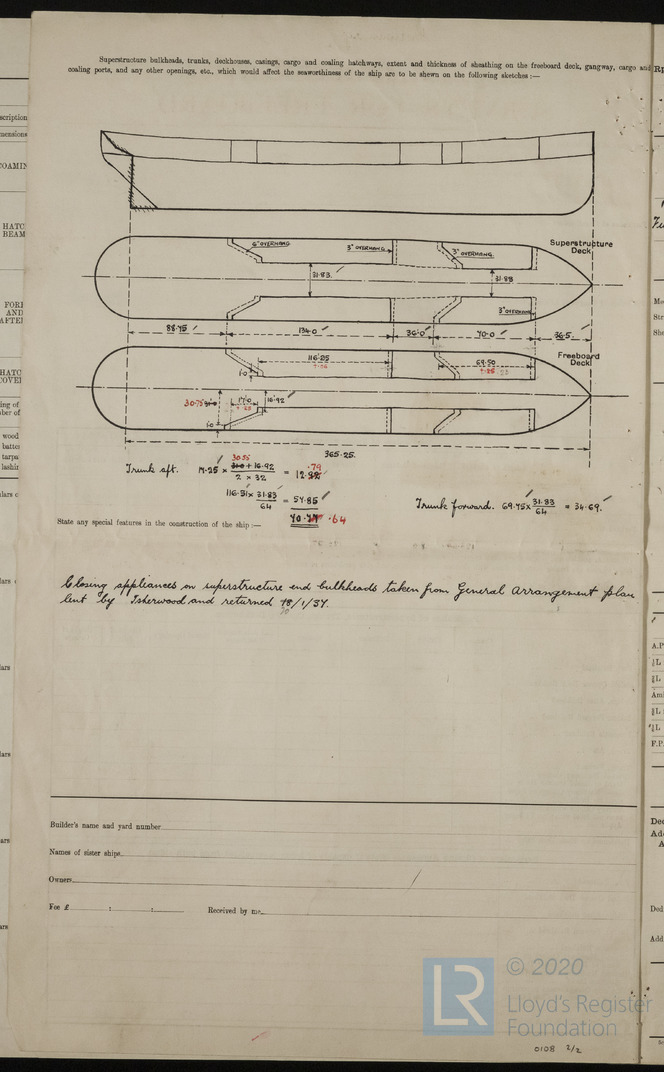 Superstructure bulkheads, trunks, deckhouses, casings, cargo and coaling hatchways, extent and thickness of sheathing on the freeboard deck, gangway, cargo and
coaling ports, and any other openings, etc., which would affect the seaworthiness of the ship are to be shewn on the following sketches :—
Superstructure
Deck
6" OVERHANG
3" OVERHANG
3" OVERHANG.
31.83.
31.83
3" OVERHANG
88.75
134.0
36.0
70.0
36.5
Freeboard
Deck
116.25
69.50
1.0
17.0
16.92
30.75
1.0
365.25.
Trunk aft. 17.25 × 30.55 + 16.92 / 2 × 32 = 12.79
116.31 × 31.83 / 64 = 57.85
.64
Trunk forward. 69.75 × 31.83 / 64 = 34.69.
State any special features in the construction of the ship :—
Closing appliances on superstructure end bulkheads taken from General Arrangement plan
lent by Isherwood and returned /1/37.
Builder's name and yard number
Names of sister ships
Owners
Fee £ : :
Received by me
LR
© 2020
Lloyd's Register
Foundation
0108 2/2